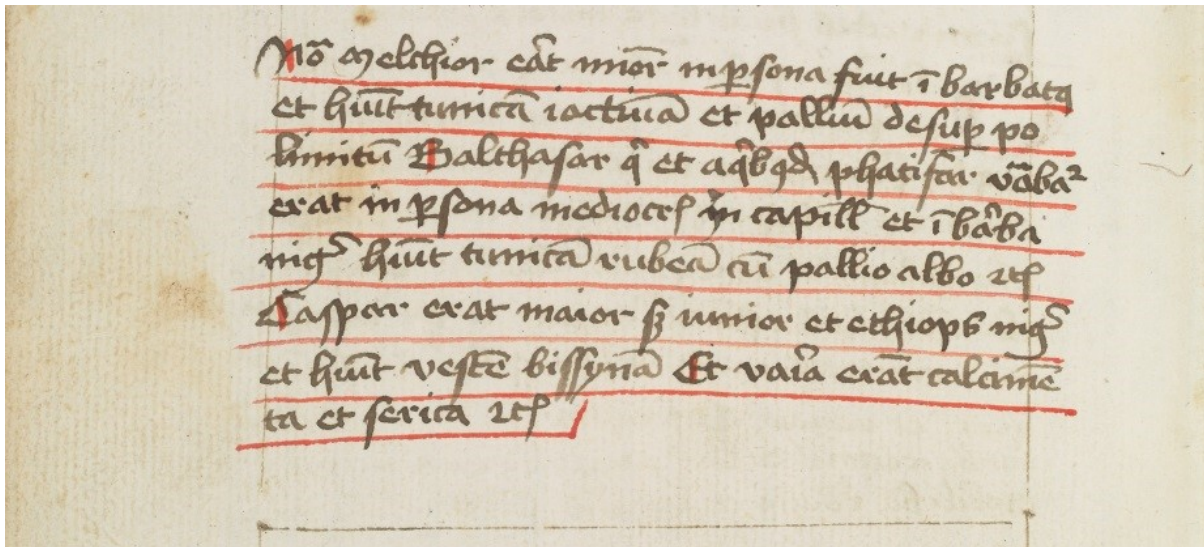 Nō Melchior erāt miōr in ꝑsona fuit ī barbatꝯ
et hūit tunicā iactiuā et palliū desuꝑ po
limitū Balthasar qͥ et phatifar vōabaꝛ
erat in ꝑsona mediocrꝭ in capill et ī barba
nigͬ hūit tunicā rubeā cū pallio albo ⁊cꝭ
Caspar erat maior sꝫ iunior et ethiops nigͬ
et hūit vestē bissynā Et vaͥra erāt calcimē
ta et serica ⁊cꝭ